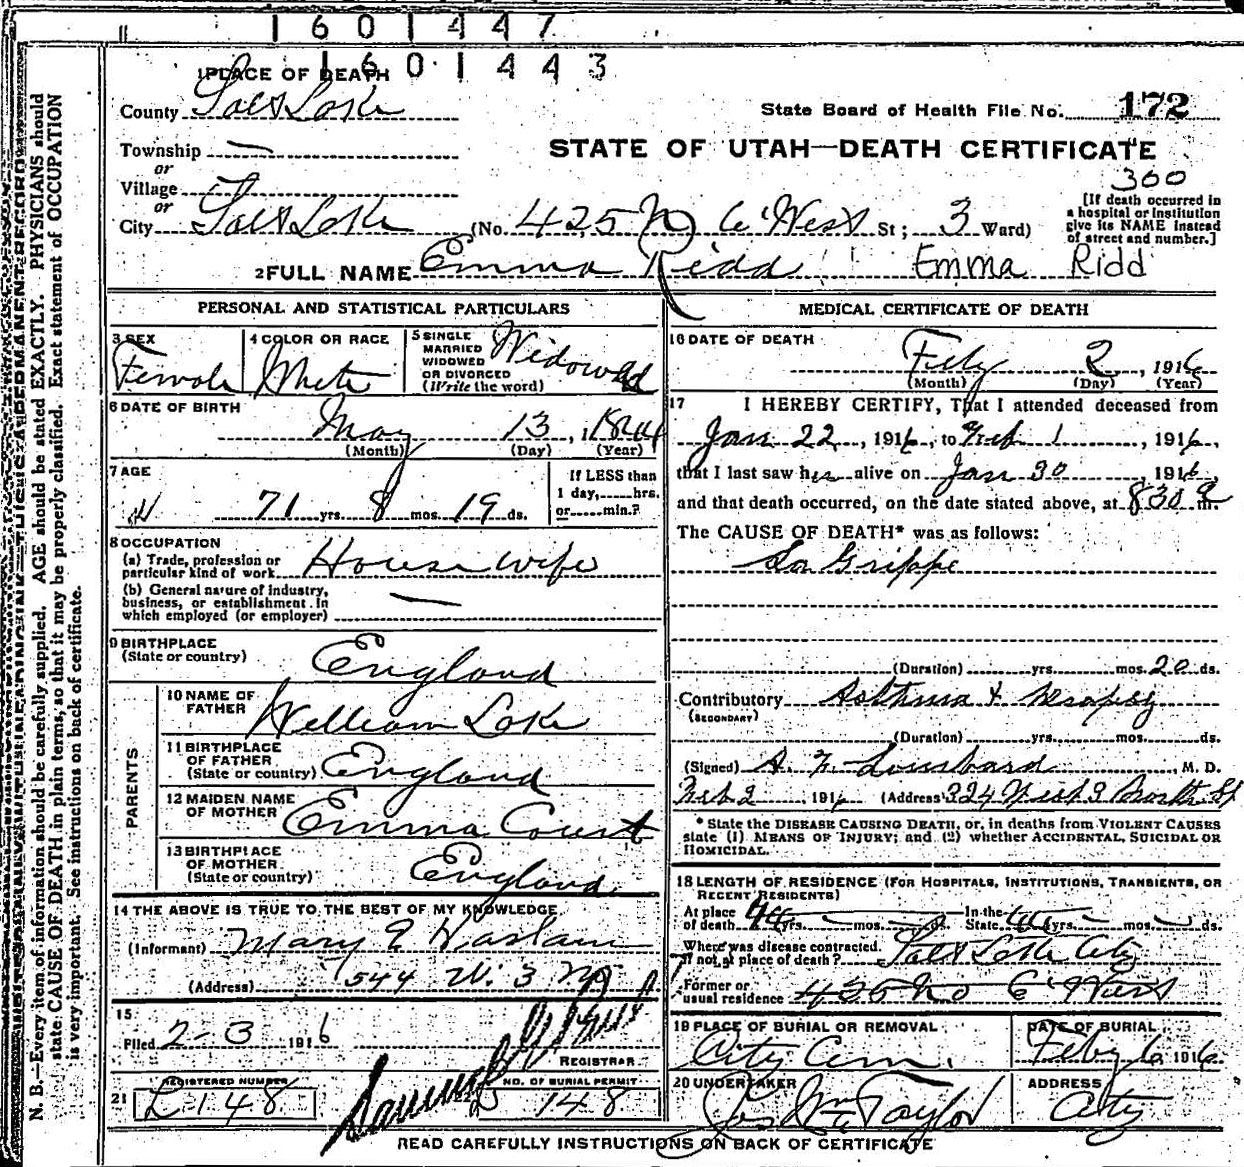 1601447
1601443
1 PLACE OF DEATH
County Salt Lake
State Board of Health File No. 172
Township —
or
Village
or
City Salt Lake
STATE OF UTAH—DEATH CERTIFICATE
300
(No. 425 No 6 West St; 3 Ward)
[If death occurred in
a hospital or institution
give its NAME instead
of street and number.]
2 FULL NAME Emma Ridd Emma Ridd
PERSONAL AND STATISTICAL PARTICULARS
3 SEX
Female
4 COLOR OR RACE
White
5 SINGLE
MARRIED
WIDOWED
OR DIVORCED
(Write the word)
Widowed
6 DATE OF BIRTH
May 13, 1844
(Month) (Day) (Year)
7 AGE
71 yrs. 8 mos. 19 ds.
If LESS than
1 day,......hrs.
or......min.?
8 OCCUPATION
(a) Trade, profession or
particular kind of work House wife
(b) General nature of industry,
business, or establishment in
which employed (or employer) —
9 BIRTHPLACE
(State or country) England
PARENTS
10 NAME OF
FATHER William Lake
11 BIRTHPLACE
OF FATHER
(State or country) England
12 MAIDEN NAME
OF MOTHER Emma Court
13 BIRTHPLACE
OF MOTHER
(State or country) England
14 THE ABOVE IS TRUE TO THE BEST OF MY KNOWLEDGE
(Informant) Mary E Haslam
(Address) 544 W. 3 No
15
Filed 2-3 1916
REGISTRAR
21 REGISTERED NUMBER
L 148
NO. OF BURIAL PERMIT
148
MEDICAL CERTIFICATE OF DEATH
16 DATE OF DEATH
Feby 2, 1916
(Month) (Day) (Year)
17 I HEREBY CERTIFY, That I attended deceased from
Jan 22, 1916, to Feb 1, 1916,
that I last saw her alive on Jan 30 1916
and that death occurred, on the date stated above, at 830 a m.
The CAUSE OF DEATH* was as follows:
La Grippe
(Duration) yrs. mos. 20 ds.
Contributory Asthma & Dropsy
(SECONDARY)
(Duration) yrs. mos. ds.
(Signed) A. Z. Lombard, M. D.
Feb 2, 1916 (Address) 324 West 3 North St
* State the DISEASE CAUSING DEATH, or, in deaths from VIOLENT CAUSES
state (1) MEANS OF INJURY; and (2) whether ACCIDENTAL, SUICIDAL OR
HOMICIDAL.
18 LENGTH OF RESIDENCE (FOR HOSPITALS, INSTITUTIONS, TRANSIENTS, OR
RECENT RESIDENTS)
At place
of death yrs. mos. ds. In the
State yrs. mos. ds.
Where was disease contracted,
if not at place of death? Salt Lake City
Former or
usual residence 425 No 6 West
19 PLACE OF BURIAL OR REMOVAL
City Cem.
DATE OF BURIAL
Feby 6, 1916
20 UNDERTAKER
Jos Wm Taylor
ADDRESS
City
READ CAREFULLY INSTRUCTIONS ON BACK OF CERTIFICATE
N. B.—Every item of information should be carefully supplied. AGE should be stated EXACTLY. PHYSICIANS should
state CAUSE OF DEATH in plain terms, so that it may be properly classified. Exact statement of OCCUPATION
is very important. See instructions on back of certificate.